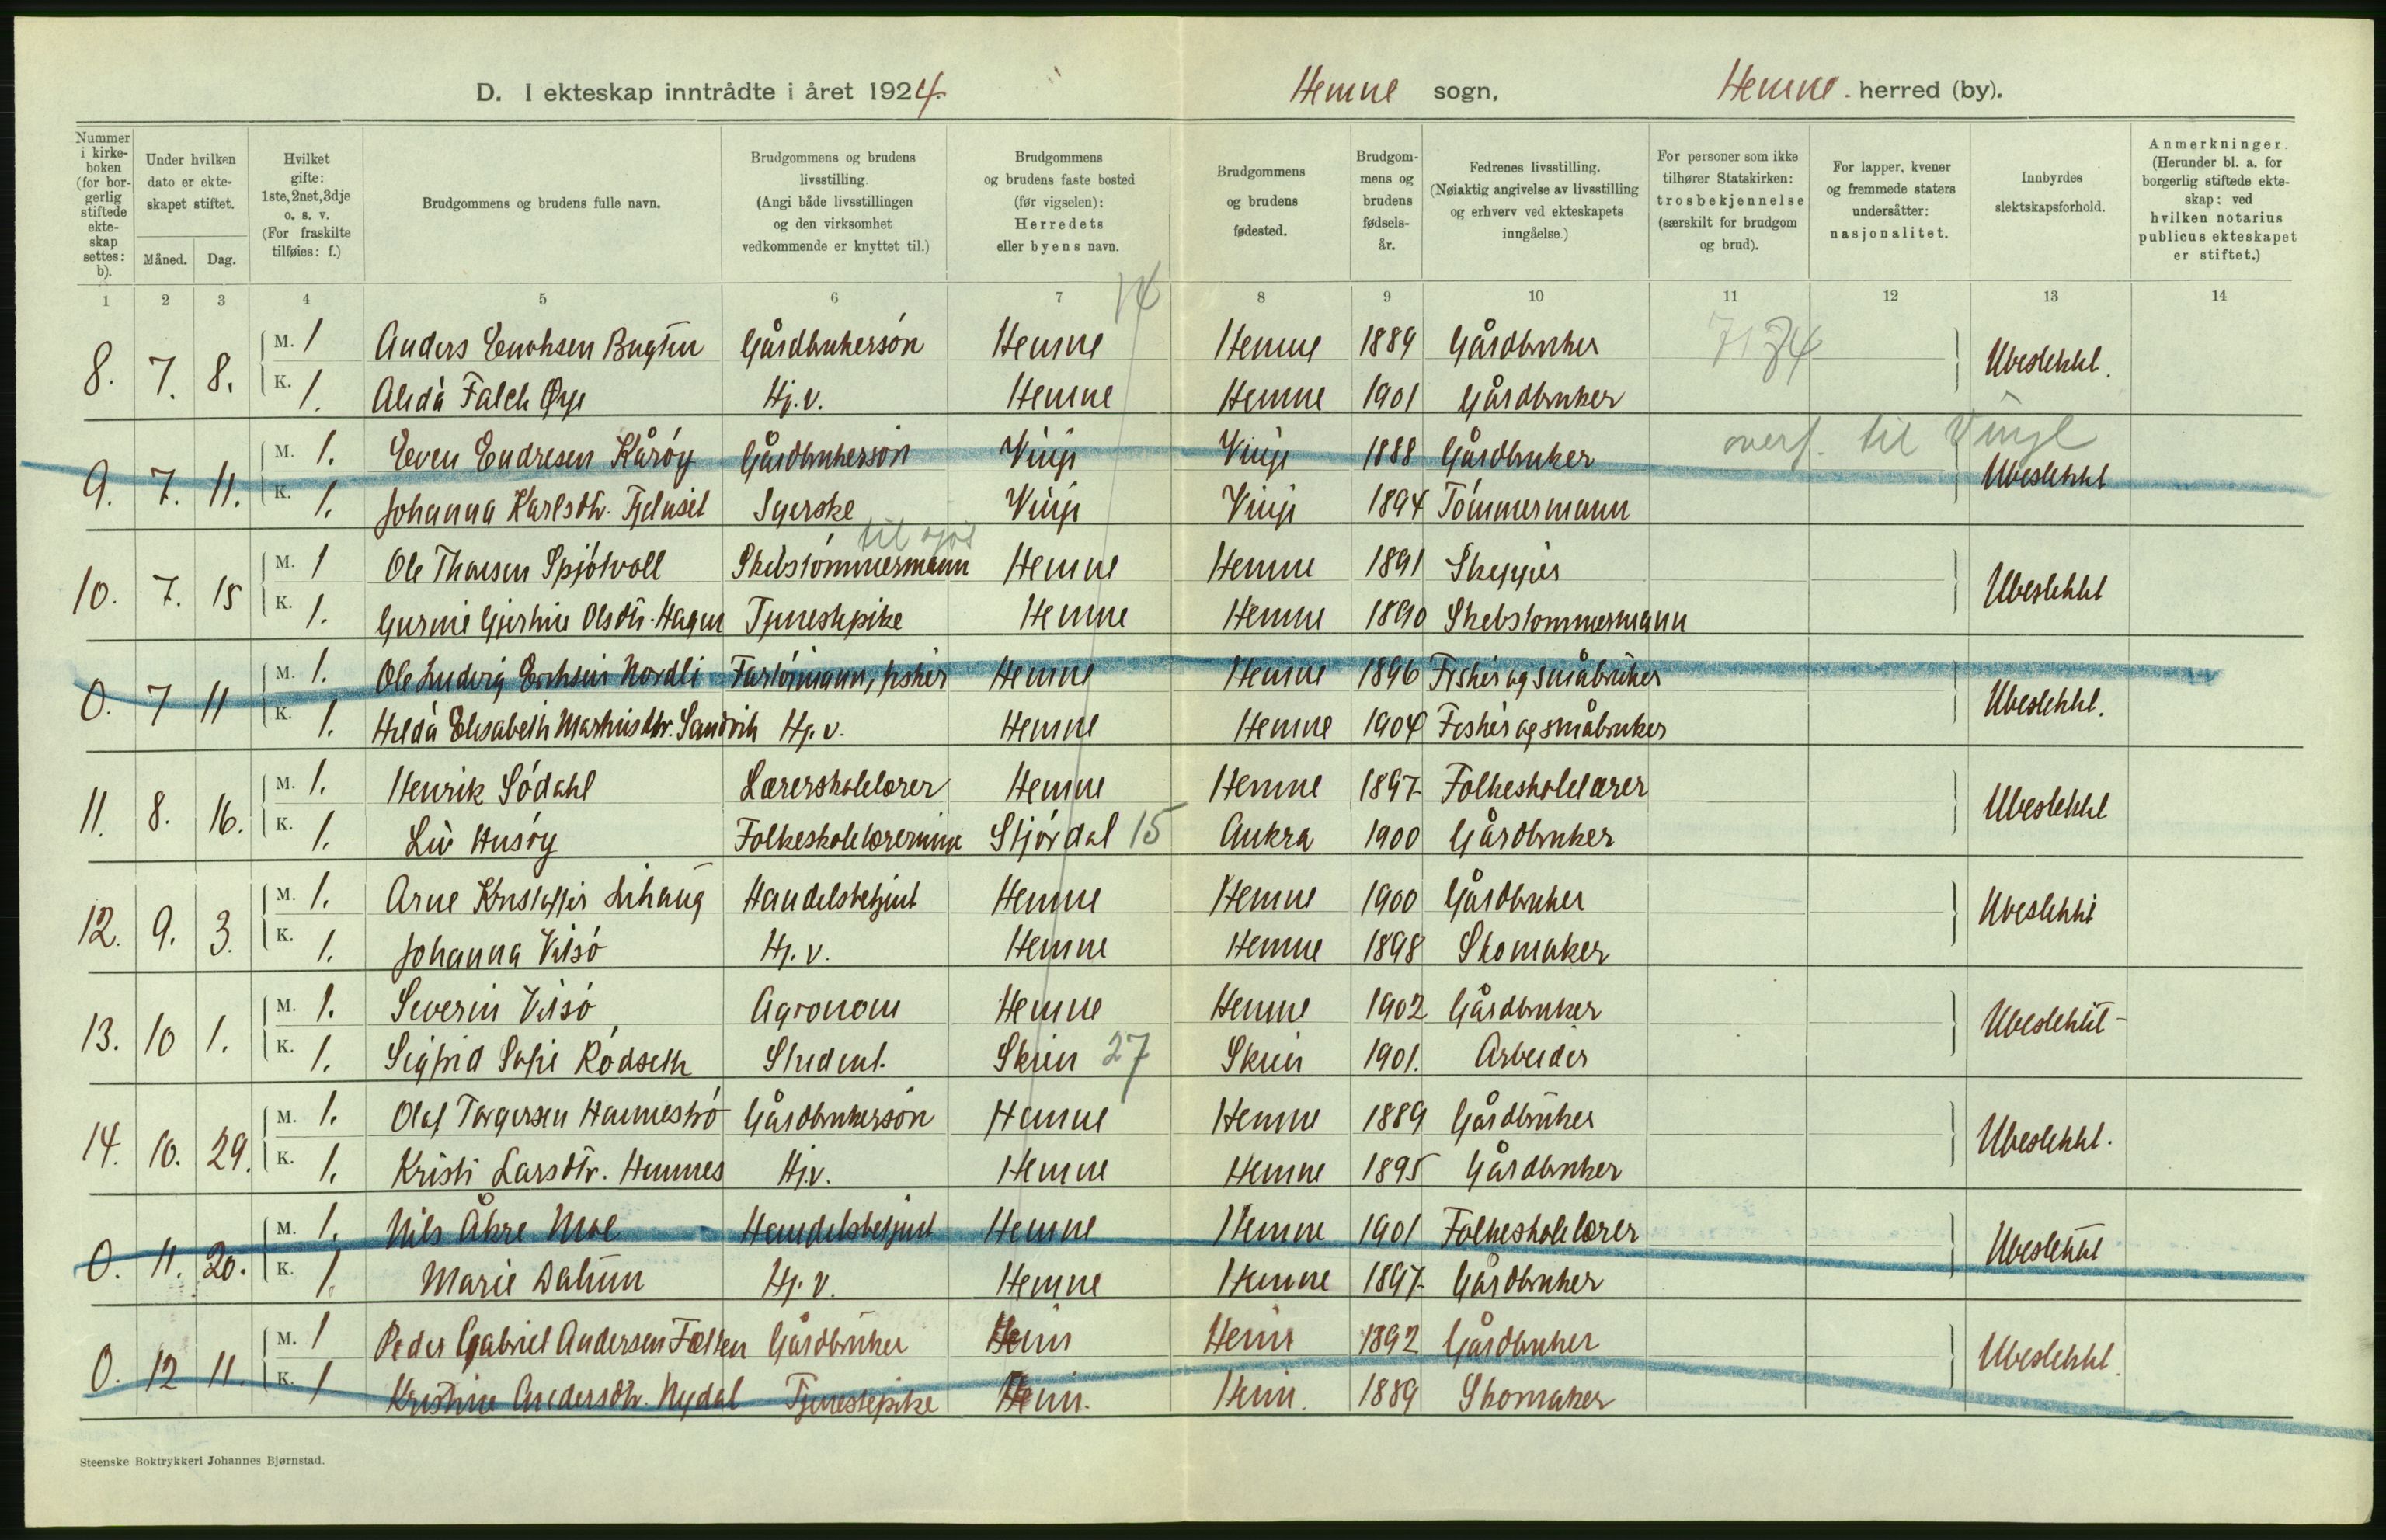 D. I ekteskap inntrådte i året 1924. Hemne sogn, Hemne herred (by).
Nummer i kirke-boken (for bor-gerlig stiftede ekte-skap settes: b).
Under hvilken dato er ekte-skapet stiftet.
Måned. Dag.
Hvilket gifte: 1ste, 2net, 3dje o. s. v. (For fraskilte tilføies: f.)
Brudgommens og brudens fulle navn.
Brudgommens og brudens livsstilling. (Angi både livsstillingen og den virksomhet vedkommende er knyttet til.)
Brudgommens og brudens faste bosted (før vigselen): Herredets eller byens navn.
Brudgommens og brudens fødested.
Brudgom-mens og brudens fødsels-år.
Fedrenes livsstilling. (Nøiaktig angivelse av livsstilling og erhverv ved ekteskapets inngåelse.)
For personer som ikke tilhører Statskirken: trosbekjennelse (særskilt for brudgom og brud).
For lapper, kvener og fremmede staters undersåtter: nasjonalitet.
Innbyrdes slektskapsforhold.
Anmerkninger. (Herunder bl. a. for borgerlig stiftede ekte-skap: ved hvilken notarius publicus ekteskapet er stiftet.)
1 2 3 4 5 6 7 8 9 10 11 12 13 14
14
8. 7. 8. M. 1 Anders Enohsen Bugten Gårdbrukersön Hemne Hemne 1889 Gårdbruker Ubeslektet.
K. 1. Alida Falch Øye Hj.v. Hemne Hemne 1901 Gårdbruker
overf. til Vinje
9. 7. 11. M. 1. Even Endresen Kåröy Gårdbrukersön Vinje Vinje 1888 Gårdbruker Ubeslektet
K. 1. Johanna Karlsdtr. Fjelnset Syerske Vinje Vinje 1894 Tömmermann
til sjös
10. 7. 15 M. 1 Ole Thorsen Spjötvoll Skibstömmermann Hemne Hemne 1891 Skipper Ubeslektet
K. 1. Gurine Gjertine Olsdtr. Hagen Tjenestepike Hemne Hemne 1890 Skibstømmermann
0. 7 11 M. 1. Ole Ludvig Erichsen Nordli Fartöimann, fisker Hemne Hemne 1896 Fisker og småbruker Ubeslektet.
K. 1. Hilda Elisabeth Martinsdtr. Sandvik Hj.v. Hemne Hemne 1904 Fisker og småbruker
11. 8. 16. M. 1. Henrik Södahl Lærerskolelærer Hemne Hemne 1897 Folkeskolelærer Ubeslektet
K. 1. Liv Husöy Folkeskolelærerinne Stjördal 15 Aukra 1900 Gårdbruker
12. 9. 3. M. 1. Arne Kristoffer Lihaug Handelsbetjent Hemne Hemne 1900 Gårdbruker Ubeslektet
K. 1. Johanna Vitsö Hj.v. Hemne Hemne 1898 Skomaker
13. 10 1. M. 1. Severin Vitsö Agronom Hemne Hemne 1902 Gårdbruker Ubeslektet
K. 1. Sigfrid Sofie Rödseth Student. Skien 27 Skien 1901. Arbeider
14. 10. 29. M. 1. Olaf Torgersen Hamneströ Gårdbrukersön Hemne Hemne 1889 Gårdbruker Ubeslektet.
K. 1. Kristi Larsdtr. Hemnes Hj.v. Hemne Hemne 1895 Gårdbruker
0. 11. 20. M. 1. Nils Åkre Moe Handelsbetjent Hemne Hemne 1901 Folkeskolelærer Ubeslektet
K. 1. Marie Dalum Hj.v. Hemne Hemne 1897 Gårdbruker
0. 12 11. M. 1 Peder Gabriel Andersen Fætten Gårdbruker Heim Heim 1892 Gårdbruker Ubeslektet.
K. 1 Kristine Andersdtr. Nydal Tjenestepike Heim. Heim. 1889 Skomaker
Steenske Boktrykkeri Johannes Bjørnstad.